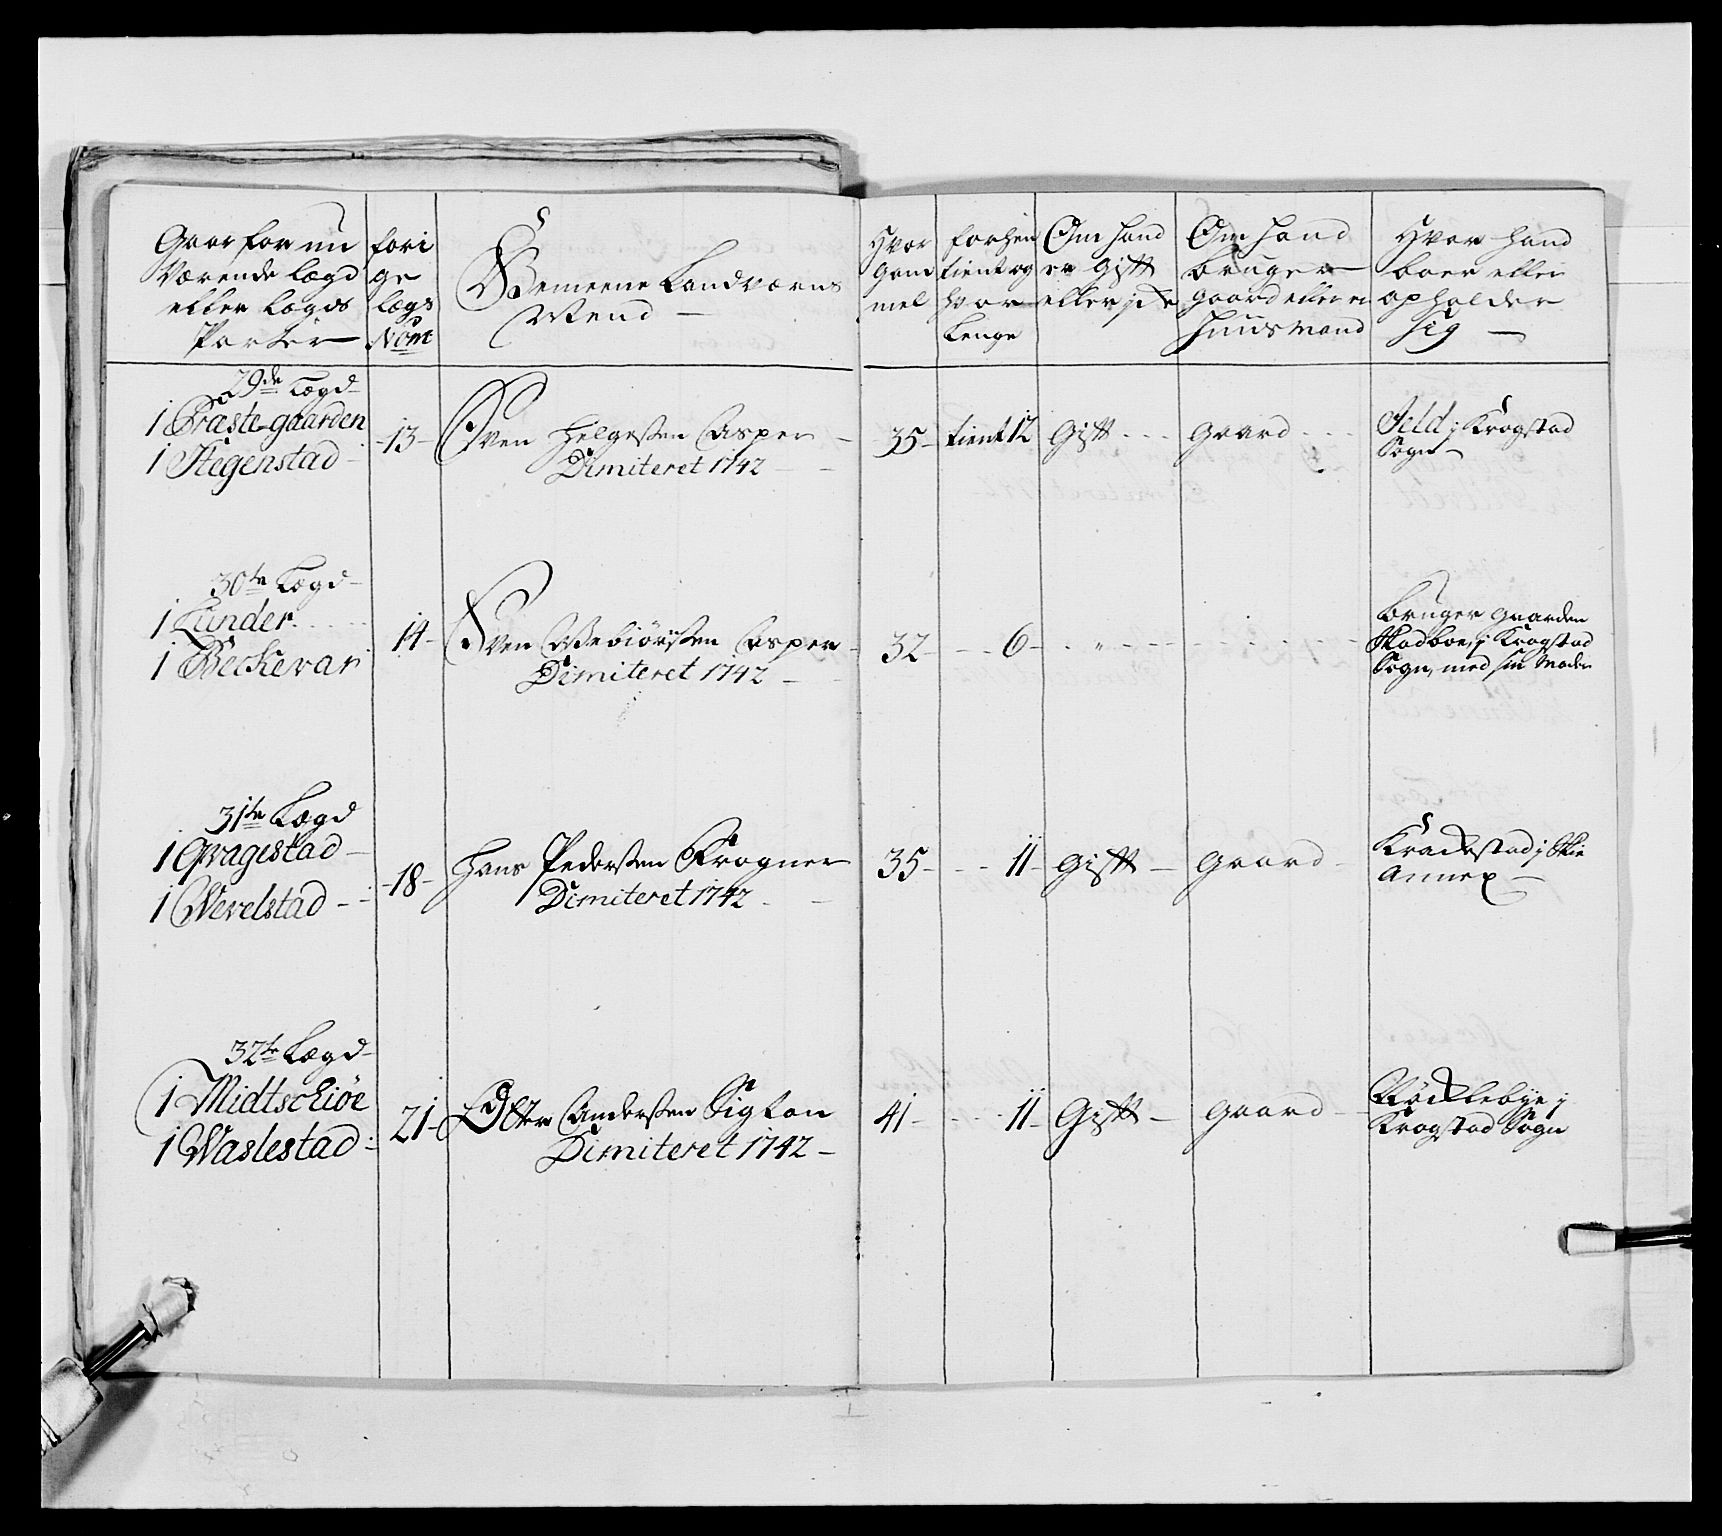 Hvor for nu
Værende Lægd
eller Lægds
Parter
fori
ge
Lægs
Nom
Gemeene Landværns
Mend
Hvor
Gam
mel
forhen
tient og
hvor
Lenge
Om hand
er Gift
eller ej
Om hand
bruger
gaard eller er
Huusmand
Hvor hand
boer eller
opholder
sig
29de Lægd
1 Præste-gaarden
1 Stegenstad
13
Sven Helgesen Asper
Dimiteret 1742
35
tient 12
Gift
gaard
Jeld i Krogstad
Sogn
30te Lægd
1 Lunder
1 Beckevar
14
Sven Webiørnsen Asper
Dimiteret 1742
32
6
bruger gaarden
Skodboe i Krogstad
Sogn, med sin Moder
31te Lægd
1 Qvagestad
1 Wevelstad
18
Hans Pedersen Krogner
Dimiteret 1742
35
11
Gift
gaard
Krackstad i Skie
Annex
32te Lægd
1 Midtschiøe
1 Waslestad
21
Andersen Sigton
Dimiteret 1742
41
11
Gift
gaard
Røcklebye i
Krogstad Sogn